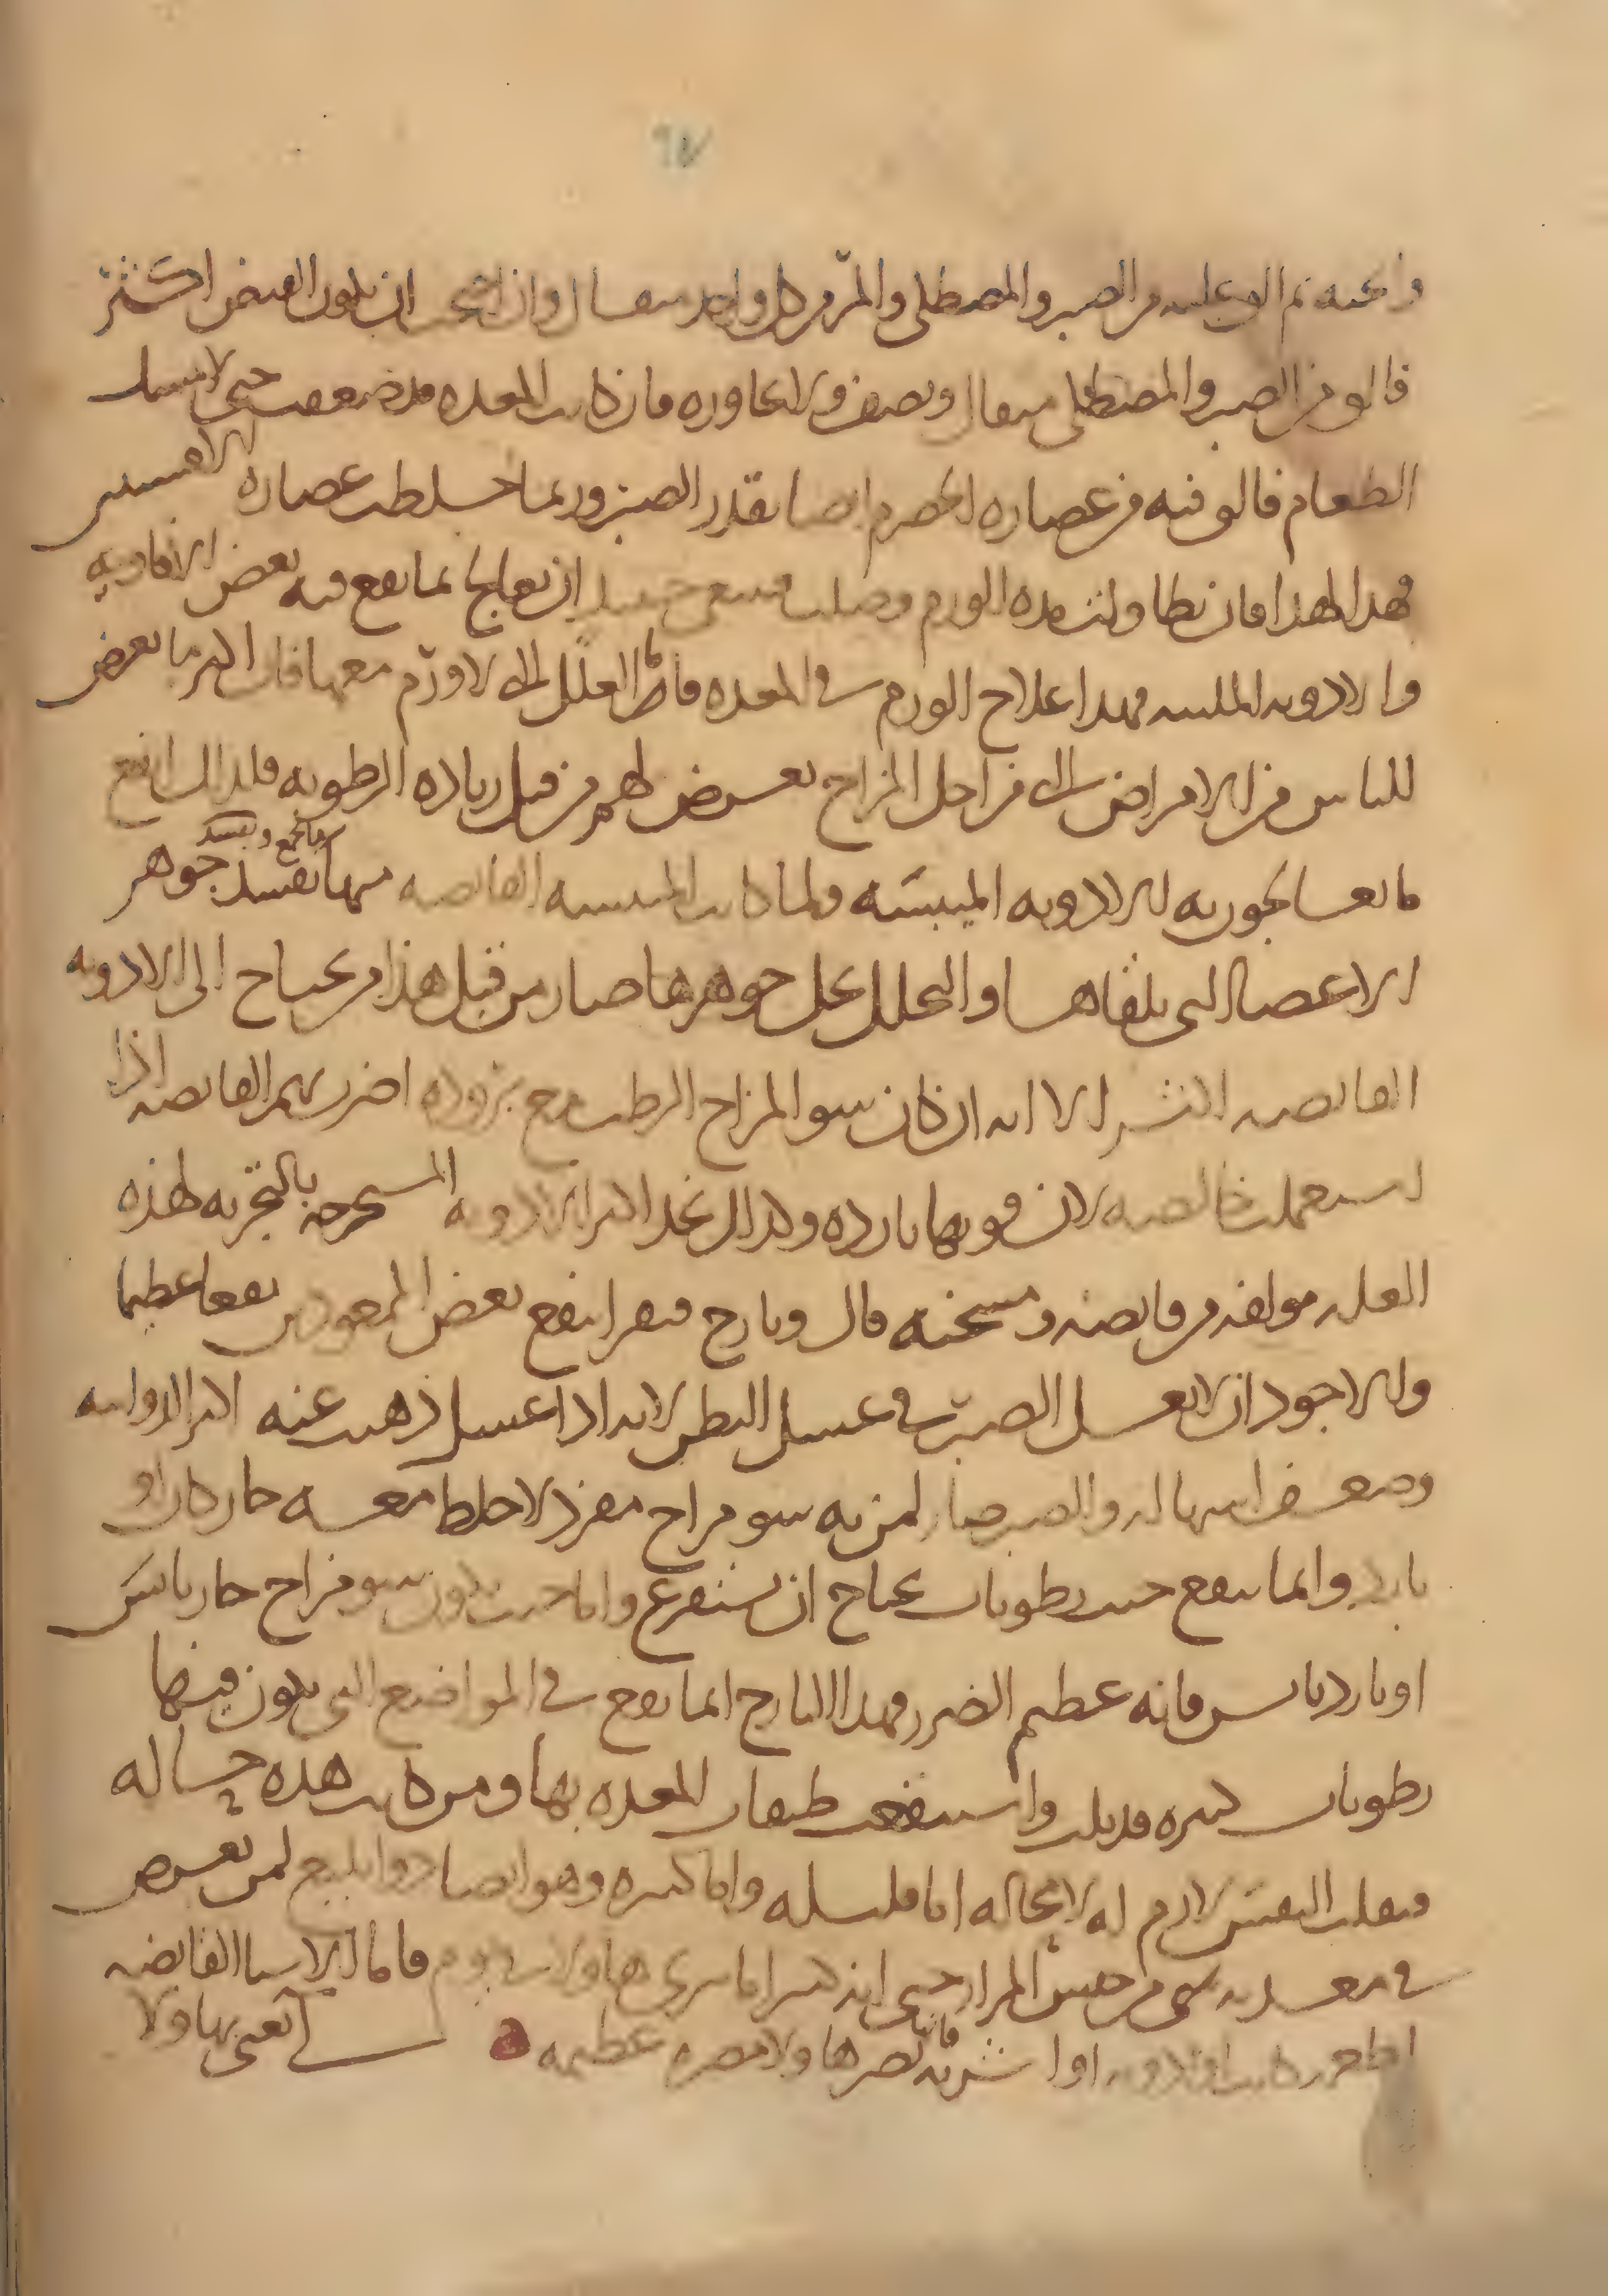 ٩٧
واعجنه ثم الق عليه من الصبر والمصطكى والمر من كل واحد مثقال وان احتجت ان يكون القبض اكثر
فالق من الصبر والمصطكى مثقال ونصف ولا تجاوزه فان كانت المعدة قد ضعفت حتى لا تمسك
الطعام فالق فيه من عصارة الحصرم ايضا بقدر الصبر وربما خلطت عصارة الافسنتين
فهذا لهذا فان تطاولت مدة الورم وصلب فينبغي حينئذ ان تعالج بما يقع فيه بعض الافاويه
والادوية الملينة فهذا علاج الورم في المعدة فاما العلل التي لا ورم معها فان اكثر ما يعرض
للناس من الامراض التي من اجل المزاج تعرض لهم من قبل زيادة الرطوبة فلذلك انفع
ما يعالجون به الادوية الميبسة ولما كانت الميبسة القابضة منها تفسد جوهر
الاعضا التي تلقاها والتحلل يحل جوهرها صار من قبل هذا من يحتاج الى الادوية
القابضة اكثر الا انه ان كان سو المزاج الرطب مع برودة اضرت بهم القابضة اذا
استعملت خالصة لان قوتها باردة ولذلك تجد اكثر الادوية المستخرجة بالتجربة لهذه
العلة مولفة من قابضة ومسخنة قال ويارج فيقرا ينفع بعض الممعودين نفعا عظيما
والاجود ان لا يغسل الصبر في غسل البطن لانه اذا غسل ذهب عنه اكثر الدوائية
وضعف اسهاله والصبر ضار لمن به سو مزاج مفرد لا خلط معه حار كان او
بارد وانما ينفع حيث رطوبات يحتاج ان تستفرغ واما حيث يكون سو مزاج حار يابس
او بارد يابس فانه عظيم الضرر فهذا الايارج انما ينفع في المواضع التي يكون فيها
رطوبات كثيرة قد بلت واستنقعت طبقات المعدة بها ومن كانت هذه حاله
فتقلب النفس لازم له لا محالة اما قليله واما كثيره وهو ايضا دوا بليغ لمن يعرض
في معدته شي من جنس المرار حتى انه كثيرا ما يبري هاولا في يوم فاما الاشيا القابضة
اطعمة كانت او ادوية او اشربة فانها تضر هاولا مضرة عظيمة
يعني بهاولا